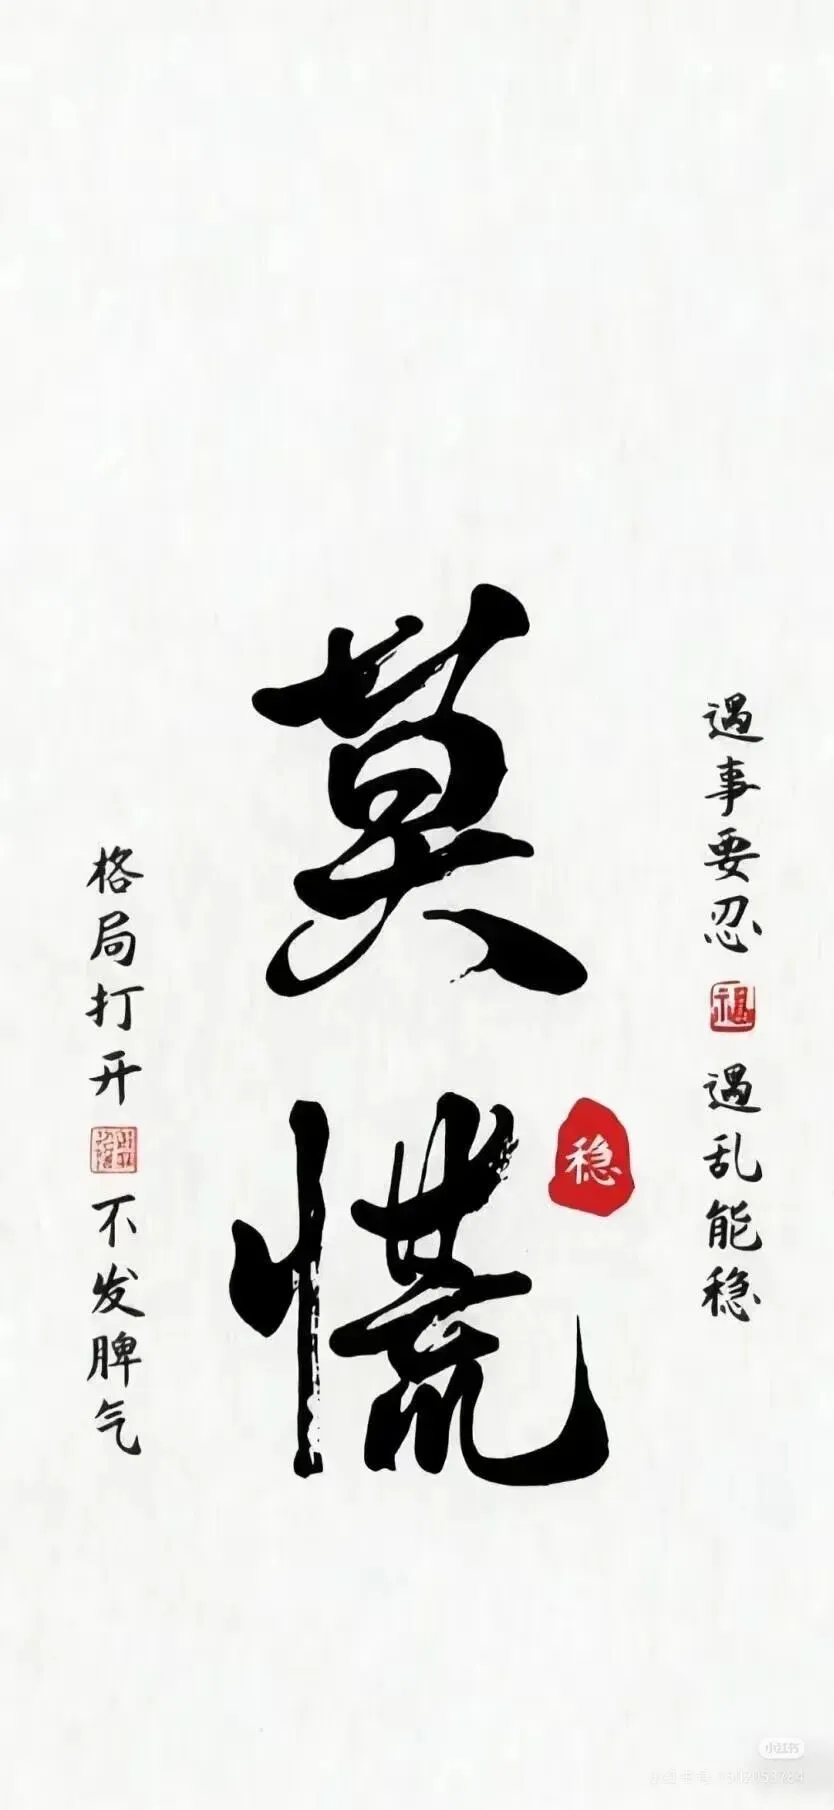 遇事要忍 遇乱能稳
莫慌
稳
格局打开 不发脾气
小红书